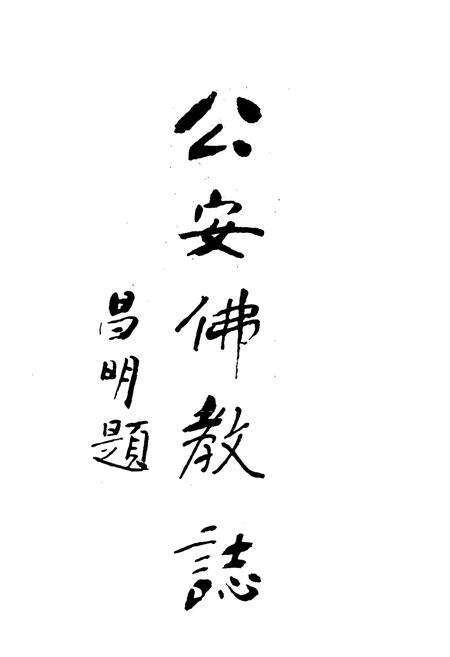 公安佛教誌
昌明題